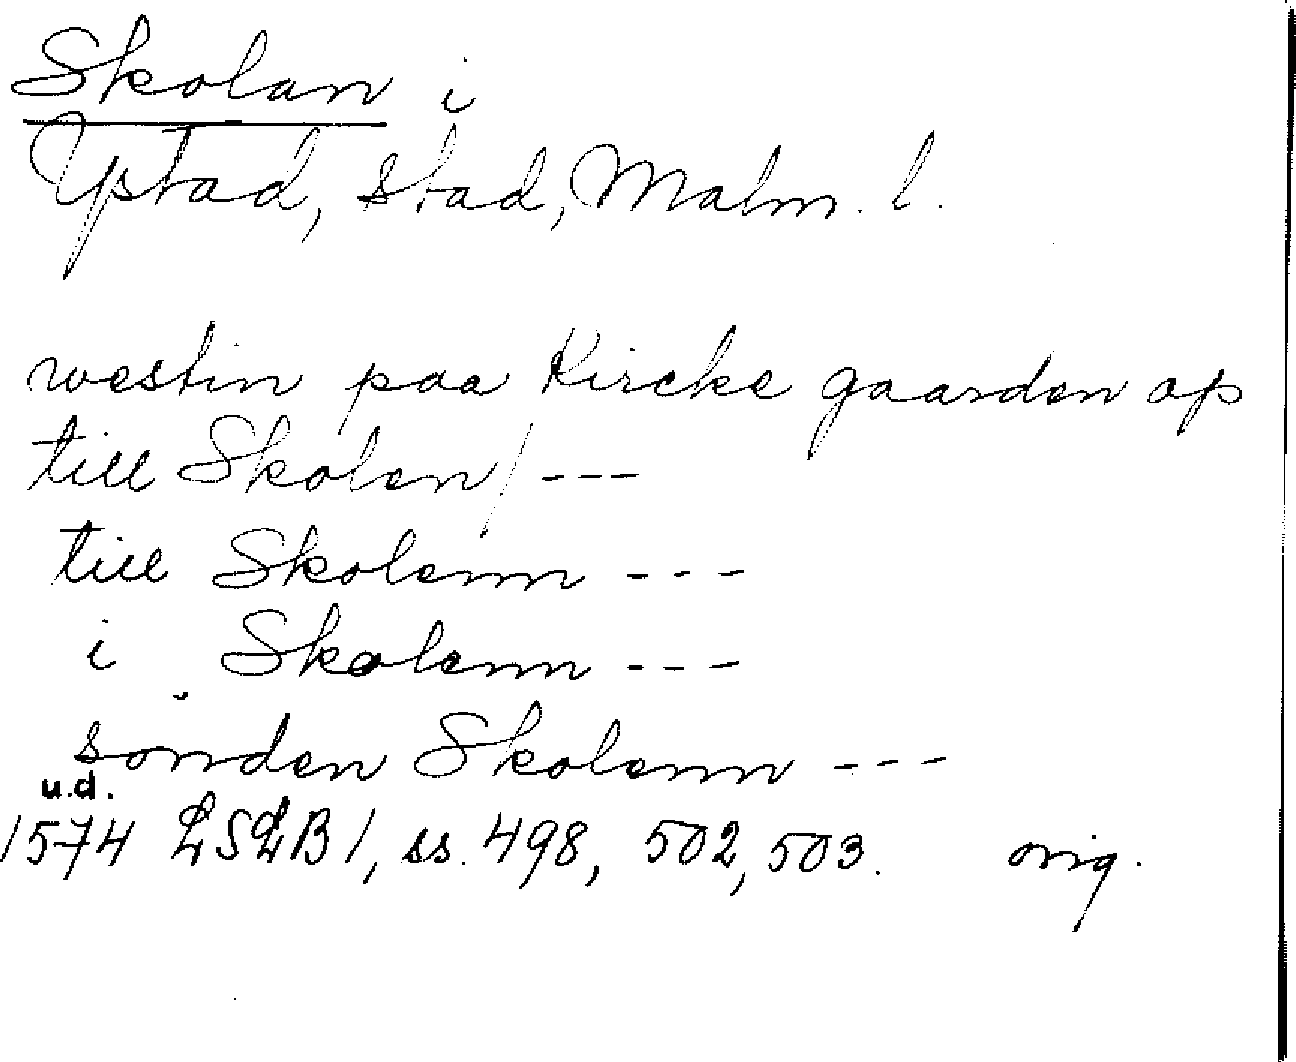 Skolan i
Ystad, stad, Malm. l.
westin paa Kircke gaarden op
till Skolen/ ---
till Skolenn ---
i Skolenn ---
sönden Skolenn ---
u.d.
1574 LSLB 1, ss. 498, 502, 503. orig.